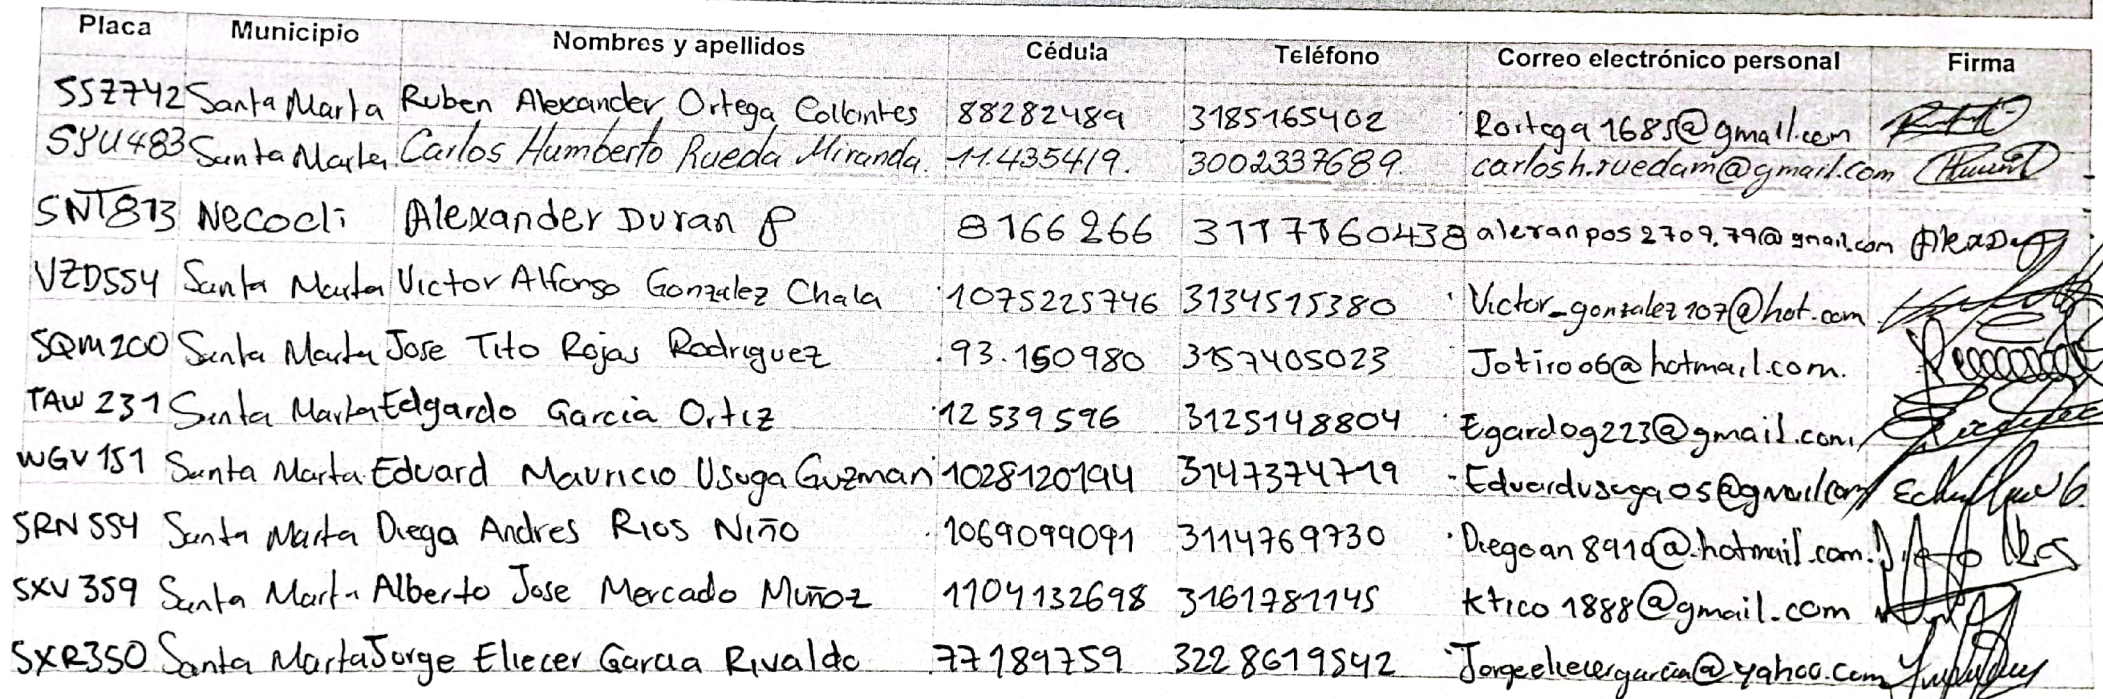 Placa Municipio Nombres y apellidos Cédula Teléfono Correo electrónico personal Firma
SSZ742 Santa Marta Ruben Alexander Ortega Collantes 88282489 3185165402 Rortega1685@gmail.com
SYU483 Santa Marta Carlos Humberto Rueda Miranda. 11.435419. 3002337689. carlosh.ruedam@gmail.com
SNT813 Necocli Alexander Duran P 8166266 3117160438 aleranpos2709.79@gmail.com
VZD554 Santa Marta Victor Alfonso Gonzalez Chala 1075225746 3134515380 Victor_gonzalez107@hot.com
SQM200 Santa Marta Jose Tito Rojas Rodriguez 93.150980 3157405023 Jotiro06@hotmail.com.
TAW 231 Santa Marta Edgardo Garcia Ortiz 12539596 3125148804 Egardog223@gmail.com
WGV151 Santa Marta Eduard Mauricio Usuga Guzman 1028120194 3147374719 Eduardusuga05@gmail.com
SRN554 Santa Marta Diego Andres Rios Niño 1069099091 3114769730 Diegoan8910@.hotmail.com.
SXV359 Santa Marta Alberto Jose Mercado Muñoz 1104132698 3161781145 Ktico1888@gmail.com
SXR350 Santa Marta Jorge Eliecer Garcia Rivaldo 77189759 3228619542 Jorgeeliecergarcia@yahoo.com